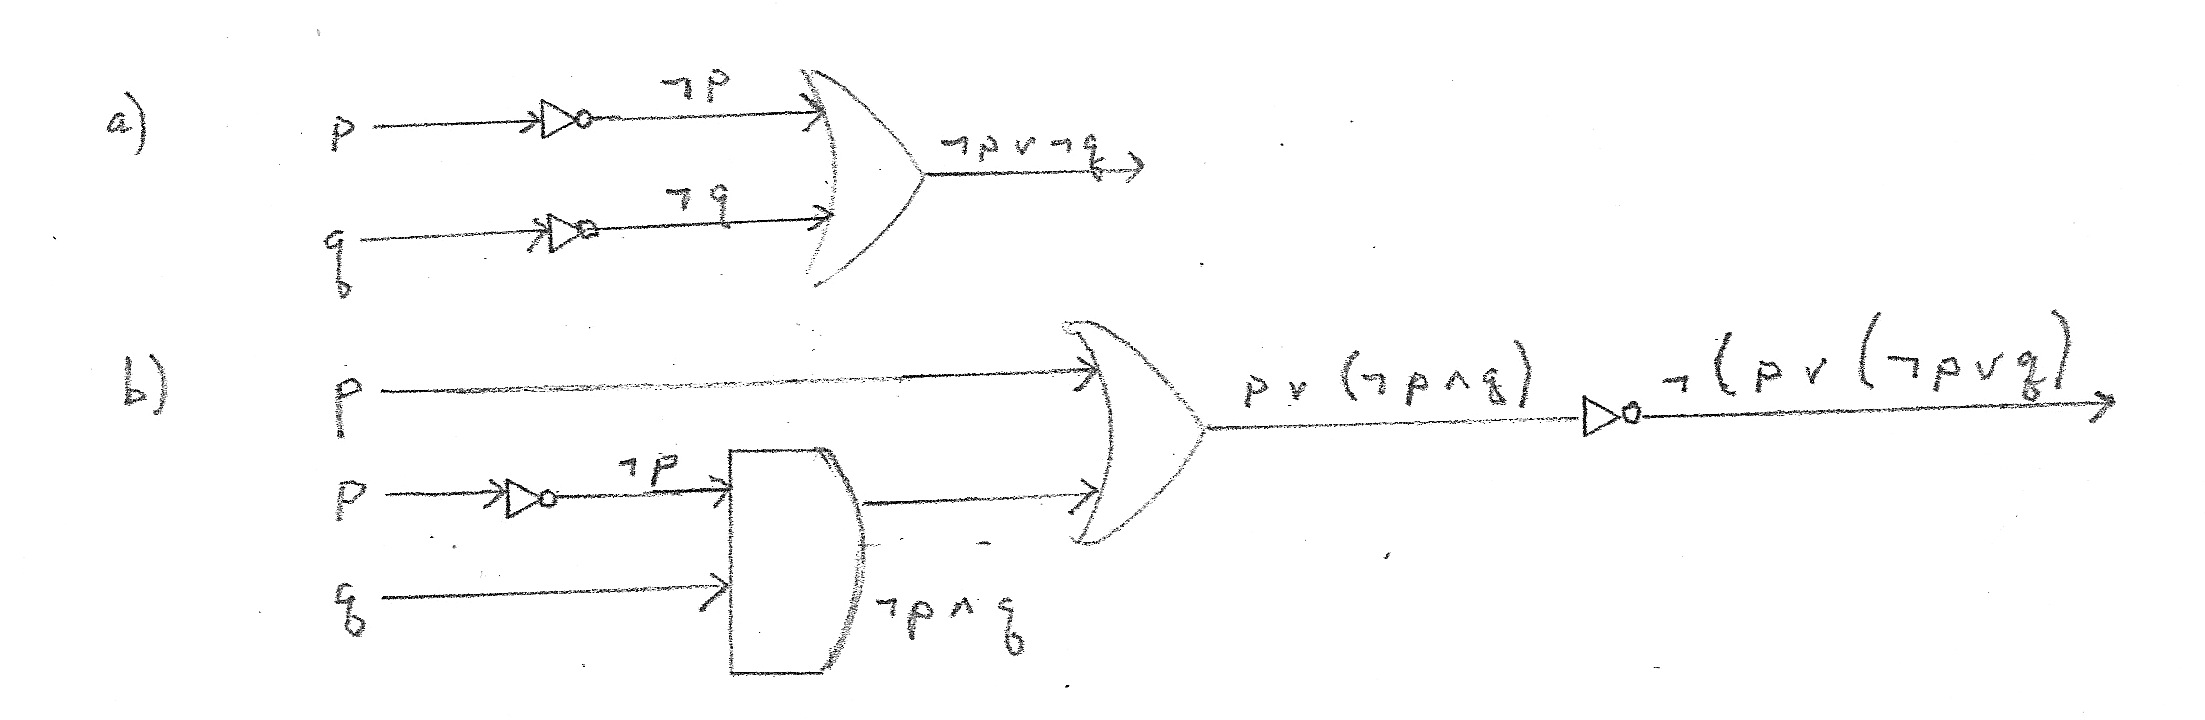 a)
p
¬p
¬p ∨ ¬q
q
¬q
b)
p
p ∨ (¬p ∧ q)
¬(p ∨ (¬p ∨ q)
p
¬p
q
¬p ∧ q